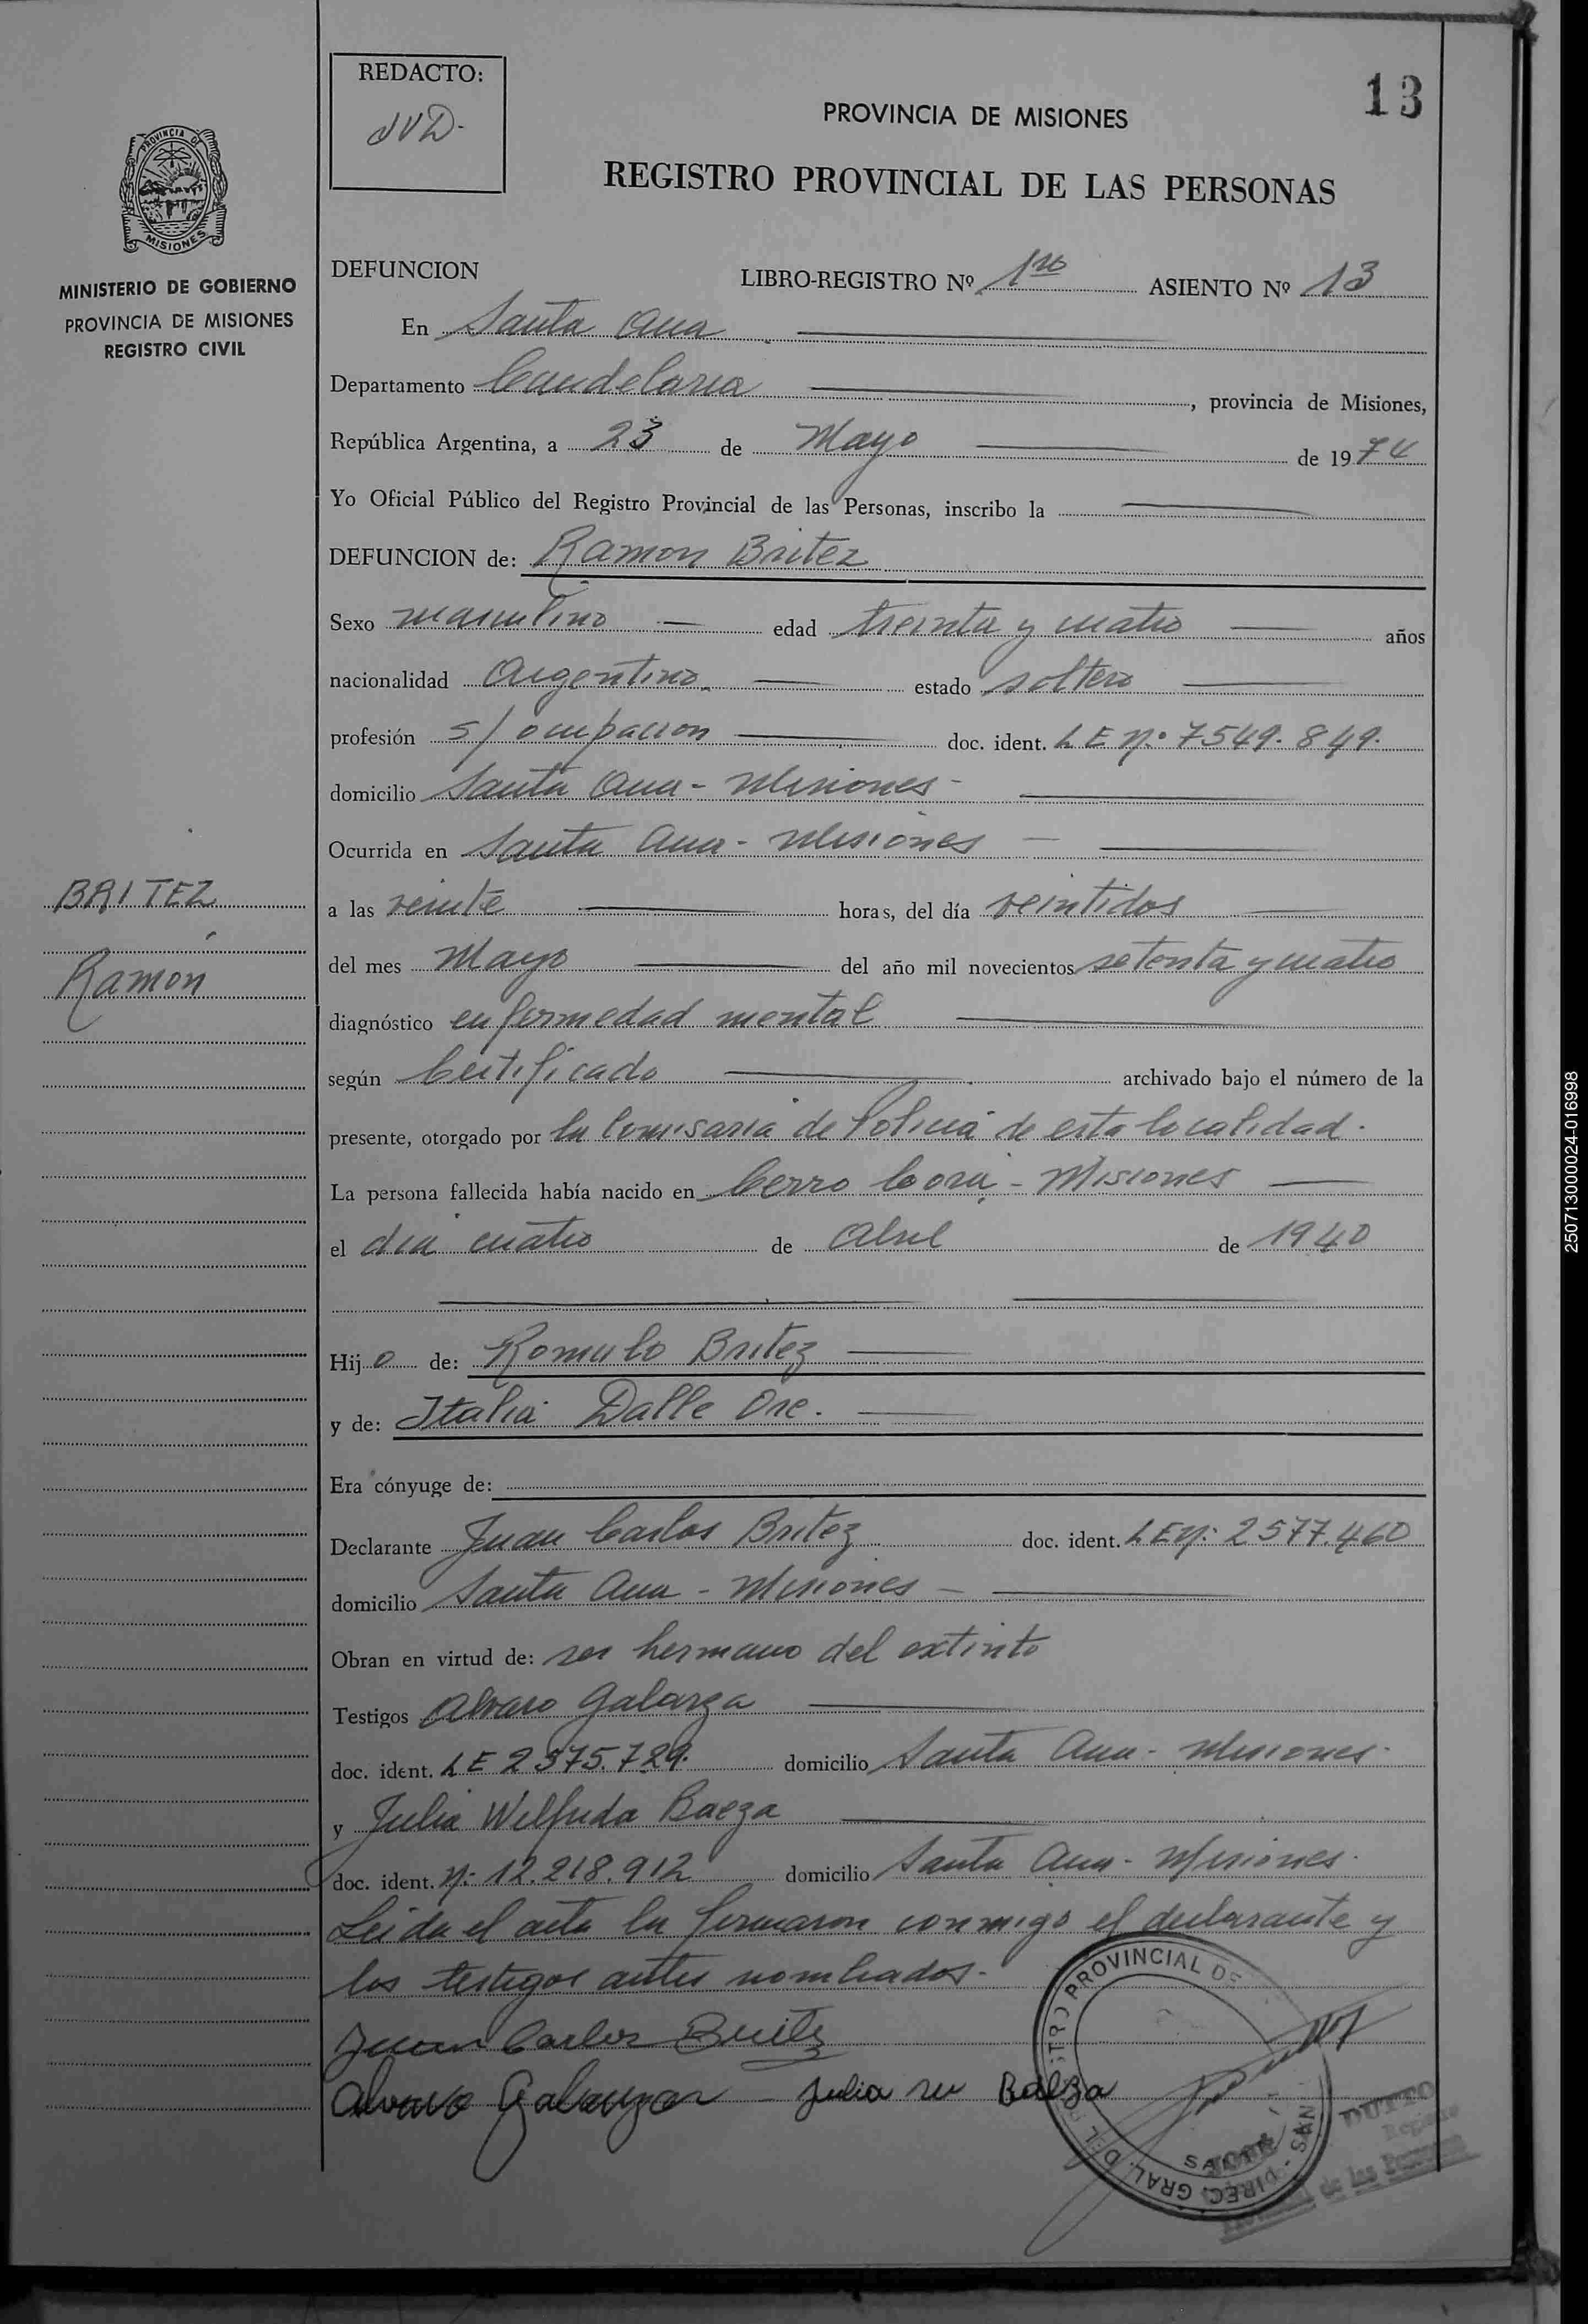 REDACTO:
JVD-
13
PROVINCIA DE MISIONES
REGISTRO PROVINCIAL DE LAS PERSONAS
PROVINCIA DE
MISIONES
MINISTERIO DE GOBIERNO
PROVINCIA DE MISIONES
REGISTRO CIVIL
DEFUNCION LIBRO-REGISTRO Nº 1ro ASIENTO Nº 13
En Santa Ana
Departamento Candelaria, provincia de Misiones,
República Argentina, a 23 de Mayo de 1974
Yo Oficial Público del Registro Provincial de las Personas, inscribo la
DEFUNCION de: Ramon Britez
Sexo masculino edad treinta y cuatro años
nacionalidad Argentino estado soltero
profesión s/ ocupacion doc. ident. LE nº 7549.849.
domicilio Santa Ana - Misiones -
Ocurrida en Santa Ana - Misiones
BRITEZ
Ramón
a las veinte horas, del día veintidos
del mes Mayo del año mil novecientos setenta y cuatro
diagnóstico enfermedad mental
según Certificado archivado bajo el número de la
presente, otorgado por la Comisaria de Policia de esta localidad.
La persona fallecida había nacido en Cerro Cora - Misiones
el dia cuatro de Abril de 1940
Hijo de: Romulo Britez
y de: Italia Dalle Ore.
Era cónyuge de:
Declarante Juan Carlos Britez doc. ident. LE nº 2577.460
domicilio Santa Ana - Misiones -
Obran en virtud de: ser hermano del extinto
Testigos Alvaro Galarza
doc. ident. LE 2575.729. domicilio Santa Ana - Misiones.
y Julia Wilfrida Baeza
doc. ident. Nº 12.218.912 domicilio Santa Ana - Misiones.
Leida el acta la firmaron conmigo el declarante y
los testigos antes nombrados.
Juan Carlos Britez
Alvaro Galarza - Julia W Baeza
PROVINCIAL DE
DIREC. GRAL. DEL
250713000024-016998